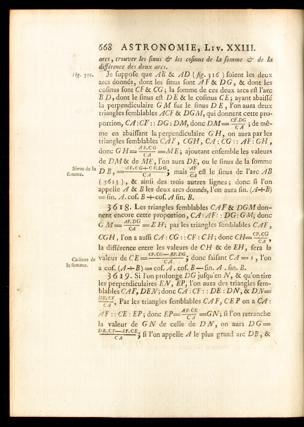 668 ASTRONOMIE, LIV. XXIII.
arcs, trouver les sinus & les cosinus de la somme & de la
différence des deux arcs.
Fig. 316. Je suppose que AB & AD (fig. 316) soient les deux
arcs donnés, dont les sinus sont AF & DG, & dont les
cosinus sont CF & CG; la somme de ces deux arcs est l'arc
BD, dont le sinus est DE & le cosinus CE; ayant abaissé
la perpendiculaire GM sur le sinus DE, l'on aura deux
triangles semblables ACF & DGM, qui donnent cette pro-
portion, CA:CF::DG:DM, donc DM=CF.DG/CA; de mê-
me en abaissant la perpendiculaire GH, on aura par les
triangles semblables CAF, CGH, CA:CG::AF:GH,
donc GH=AF.CG/CA=ME; ajoutant ensemble les valeurs
de DM & de ME, l'on aura DE, ou le sinus de la somme
Sinus de la
somme.
DB, =AF.CG+CF.DG/CA; mais AF/CA est le sinus de l'arc AB
(3613), & ainsi des trois autres lignes; donc si l'on
appelle A & B les deux arcs donnés, l'on aura sin. (A+B)
=sin. A. cos. B+cos. A sin. B.
3618. Les triangles semblables CAF & DGM don-
nent encore cette proportion, CA:AF::DG:GM; donc
GM=AF.DG/CA=EH; par les triangles semblables CAF,
CGH, l'on a aussi CA:CG::CF:CH; donc CH=CF.CG/CA
la différence entre les valeurs de CH & de EH, sera la
Cosinus de
la somme.
valeur de CE=CF.CG-AF.DG/CA, donc faisant CA=1, l'on
a cos. (A+B)=cos. A. cos. B-sin. A. sin. B.
3619. Si l'on prolonge DG jusqu'en N, & qu'on tire
les perpendiculaires EN, EP, l'on aura des triangles sem-
blables CAF, DEN; donc CA:CF::DE:DN, & DN=
DE.CF/CA. Par les triangles semblables CAF, CEP on a CA:
AF::CE:EP; donc EP=AF.CE/CA=GN; si l'on retranche
la valeur de GN de celle de DN, on aura DG=
DE.CF-AF.CE/CA; si l'on appelle A le plus grand arc DB, &